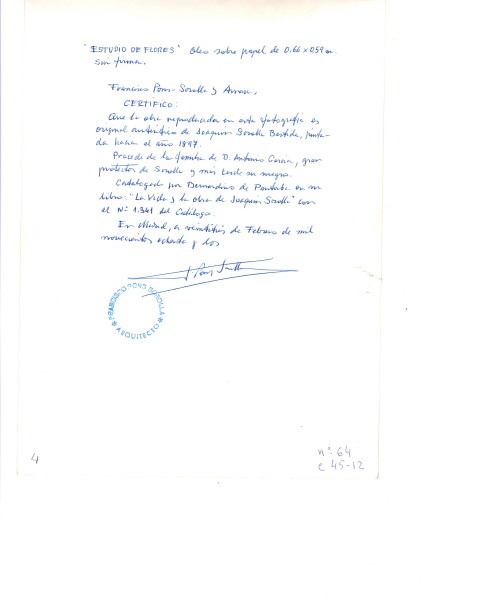 "ESTUDIO DE FLORES" Oleo sobre papel de 0.66 x 0.59 m.
sin firma.
Francisco Pons-Sorolla y Arnau,
CERTIFICO:
Que la obra reproducida en esta fotografía es
original auténtica de Joaquin Sorolla Bastida, pinta-
da hacia el año 1897.
Procede de la familia de D. Antonio García, gran
protector de Sorolla y más tarde su suegro.
Catalogada por Bernardino de Pantorba en su
libro: "La Vida y la obra de Joaquin Sorolla" con
el Nº 1.341 del Catálogo.
En Madrid, a veintitrés de Febrero de mil
novecientos ochenta y dos
F Pons Sorolla
FRANCISCO PONS SOROLLA
* ARQUITECTO *
4
nº 64
c 45-12